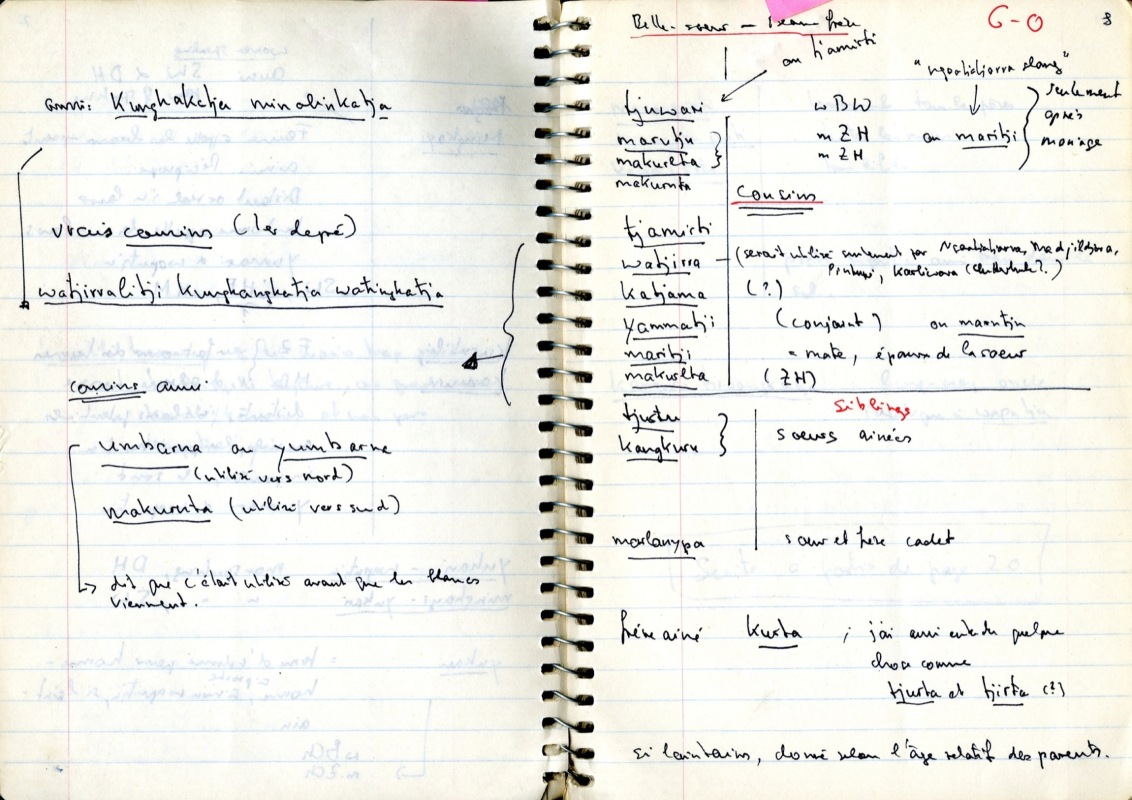 aussi: Kungkakatja minalinkatja
vrais cousins (1er degré)
watjirralitji kungkangkatja watingkatja
cousins aussi:
umbarna ou yumbarna
(utilisé vers nord)
makurnta (utilisé vers sud)
↳ dit que c'était utilisé avant que les blancs
viennent.
Belle-soeur – beau frère
G-O
8
ou tjamirti
"ngaatjatjarra slang"
tjuwari wBW
marutju mZH ou maritji
makurlta mZH
makurnta
seulement
après
mariage
Cousins
tjamirti
watjirra – (serait utilisé seulement par Ngaatjatjarra, Madjildjara,
Pintupi, Kartiwarra
katjama (?)
yammatji (conjoint) ou maruntju
maritji = mate, époux de la soeur
makurlta (ZH)
Siblings
tjurtu
kangkuru } soeurs ainées
marlanypa soeur et frère cadet
frère ainé Kurta ; j'ai aussi entendu quelque
chose comme
tjurta et tjirta (?)
si lointains, donné selon l'âge relatif des parents.